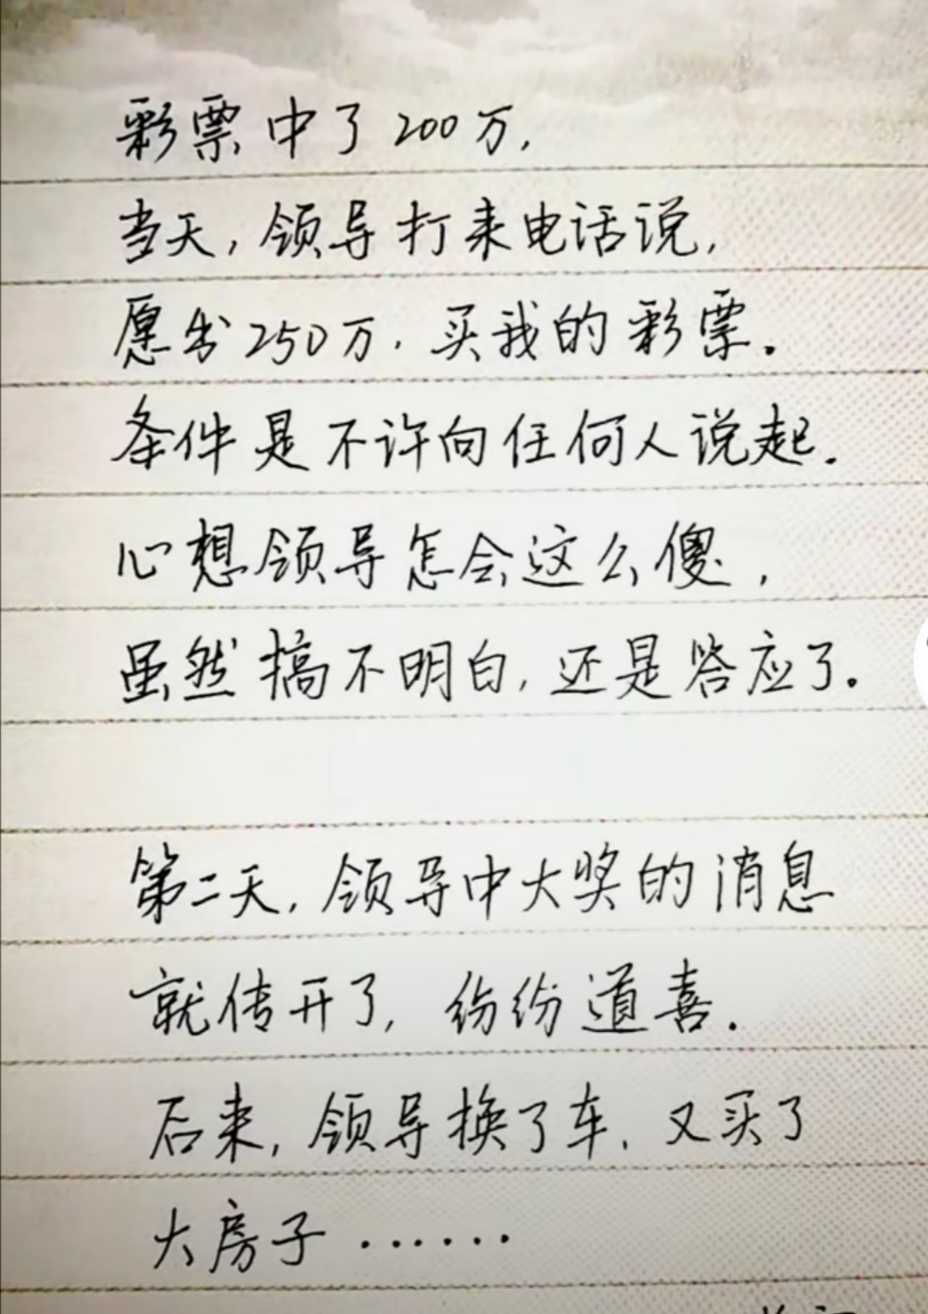 彩票中了200万,
当天,领导打来电话说,
愿出250万,买我的彩票。
条件是不许向任何人说起.
心想领导怎会这么傻,
虽然搞不明白,还是答应了。
第二天,领导中大奖的消息
就传开了,纷纷道喜.
后来,领导换了车,又买了
大房子······